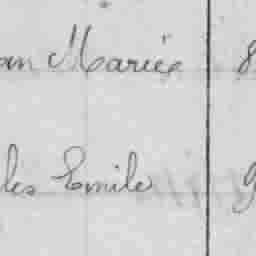 an Mariée 8
les Emile 9